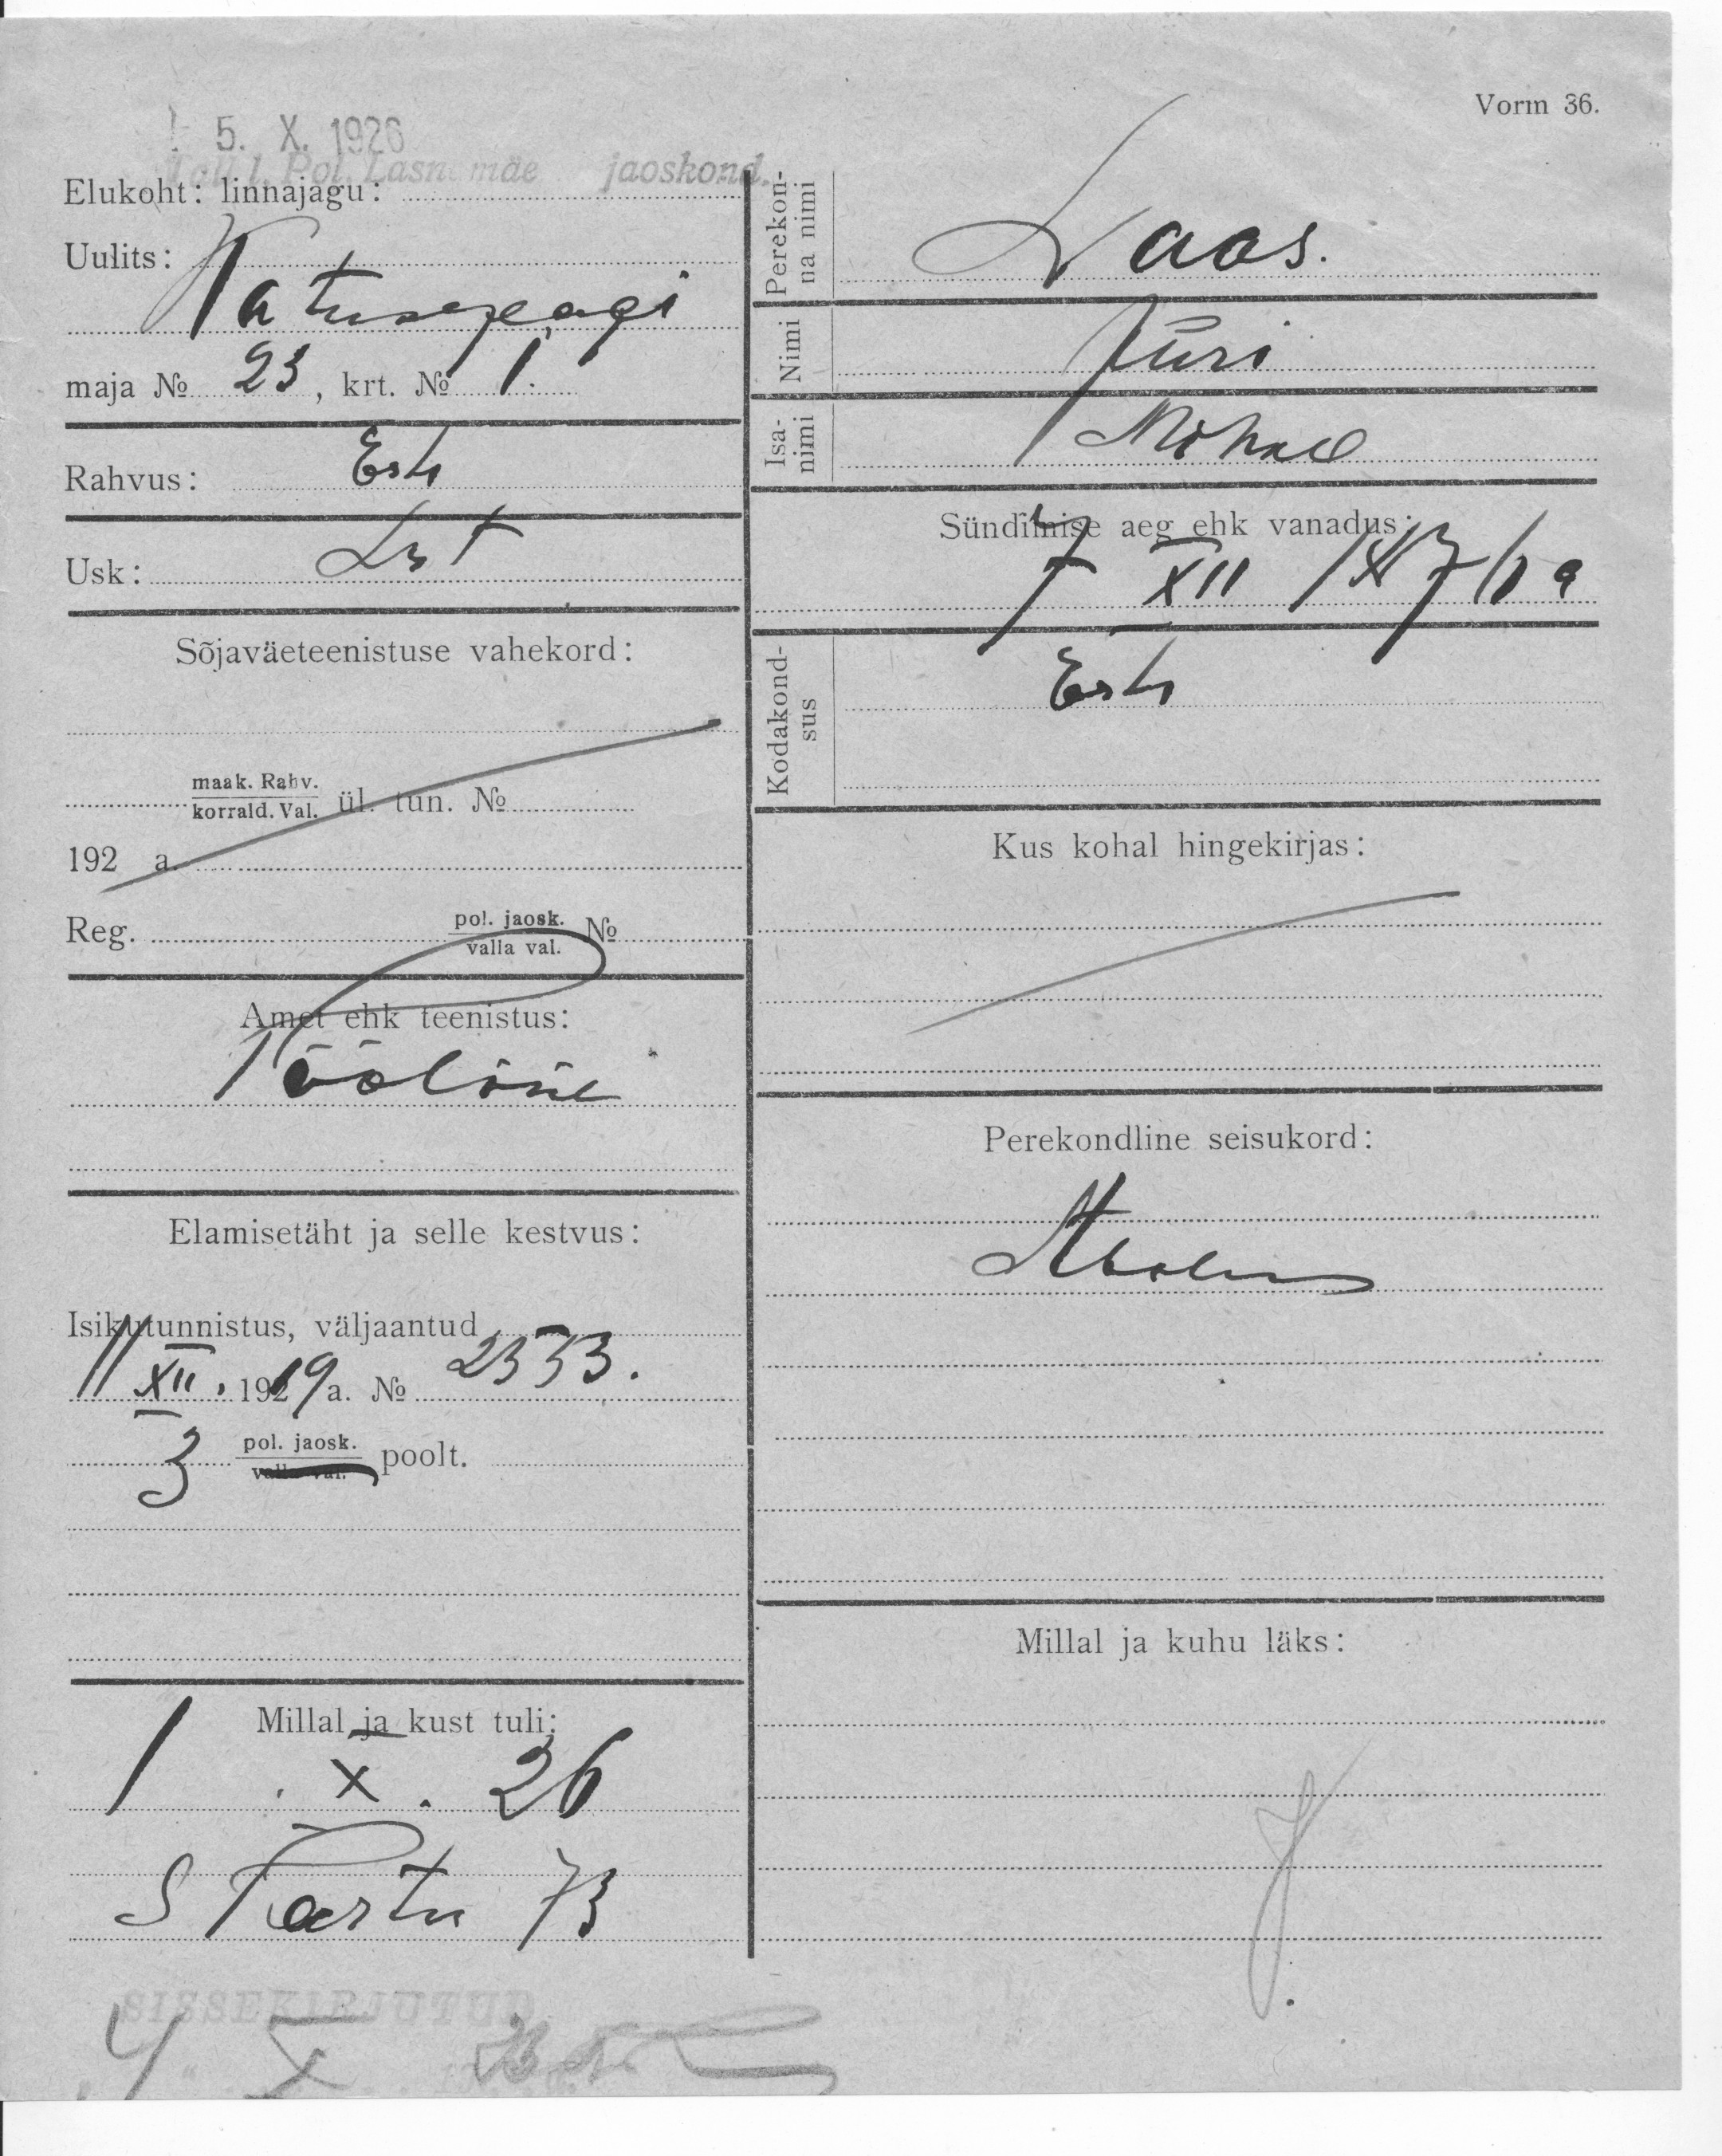 Vorm 36.
5. X. 1926
Tall. l. Pol. Lasnamäe jaoskond.
Elukoht: linnajagu:
Uulits:
maja № 23, krt. № 1.
Rahvus: Esti
Usk: Lut
Sõjaväeteenistuse vahekord:
maak. Rahv.
korrald. Val. ül. tun. №
192 a.
Reg. pol. jaosk. №
valla val.
Amet ehk teenistus:
Tööline
Elamisetäht ja selle kestvus:
Isikutunnistus, väljaantud
11 XII. 1919 a. № 2353.
3 pol. jaosk. poolt.
valla val.
Millal ja kust tuli:
1. X. 26
S Tartu 73
SISSEKIRJUTUD
4 X
Perekonna nimi
Laas.
Nimi
Jüri
Isanimi
Mihkel
Sündimise aeg ehk vanadus:
7 XII
Kodakondsus
Esti
Kus kohal hingekirjas:
Perekondline seisukord:
Abielus
Millal ja kuhu läks: